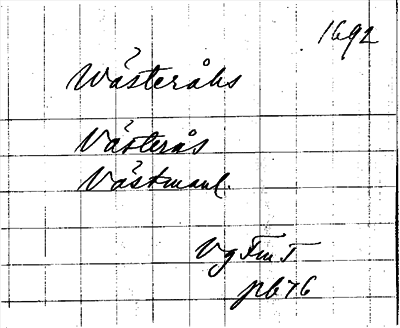 1692
Wästeråhs
Västerås
Västmanl.
Vg FmT
pb 76